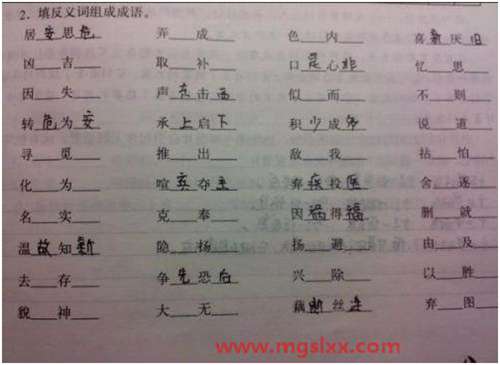 2. 填反义词组成成语。
居安思危 弄___成___ 色___内___ 喜新厌旧
凶___吉___ 取___补___ 口是心非 忆___思___
因___失___ 声东击西 似___而___ 不___则___
转危为安 承上启下 积少成多 说___道___
寻___觅___ 推___出___ 敌___我___ 拈___怕___
化___为___ 喧宾夺主 弃___投___ 舍___逐___
名___实___ 克___奉___ 因祸得福 删___就___
温故知新 隐___扬___ 扬___避___ 由___及___
去___存___ 争先恐后 兴___除___ 以___胜___
貌___神___ 大___无___ 藕断丝连 弃___图___
www.mgslxx.com